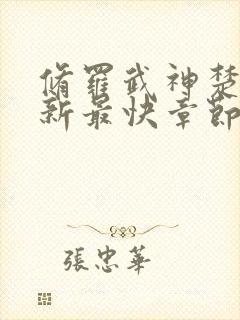 脩羅武神楚
新最快章節
張忠華